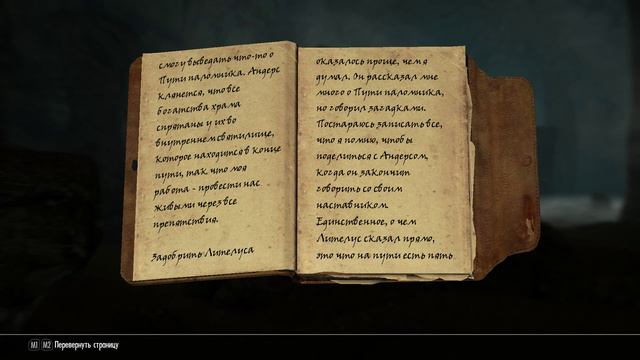 смогу выведать что-то о
Пути паломника. Андерс
клянется, что все
богатства храма
спрятаны у их во
внутреннем святилище,
которое находится в конце
пути, так что моя
работа - провести нас
живыми через все
препятствия.
Задобрить Лителуса
оказалось проще, чем я
думал. Он рассказал мне
много о Пути паломника,
но говорил загадками.
Постараюсь записать все,
что я помню, чтобы
поделиться с Андерсом,
когда он закончит
говорить со своим
наставником.
Единственное, о чем
Лителус сказал прямо,
это что на пути есть пять
M1 M2 Перевернуть страницу